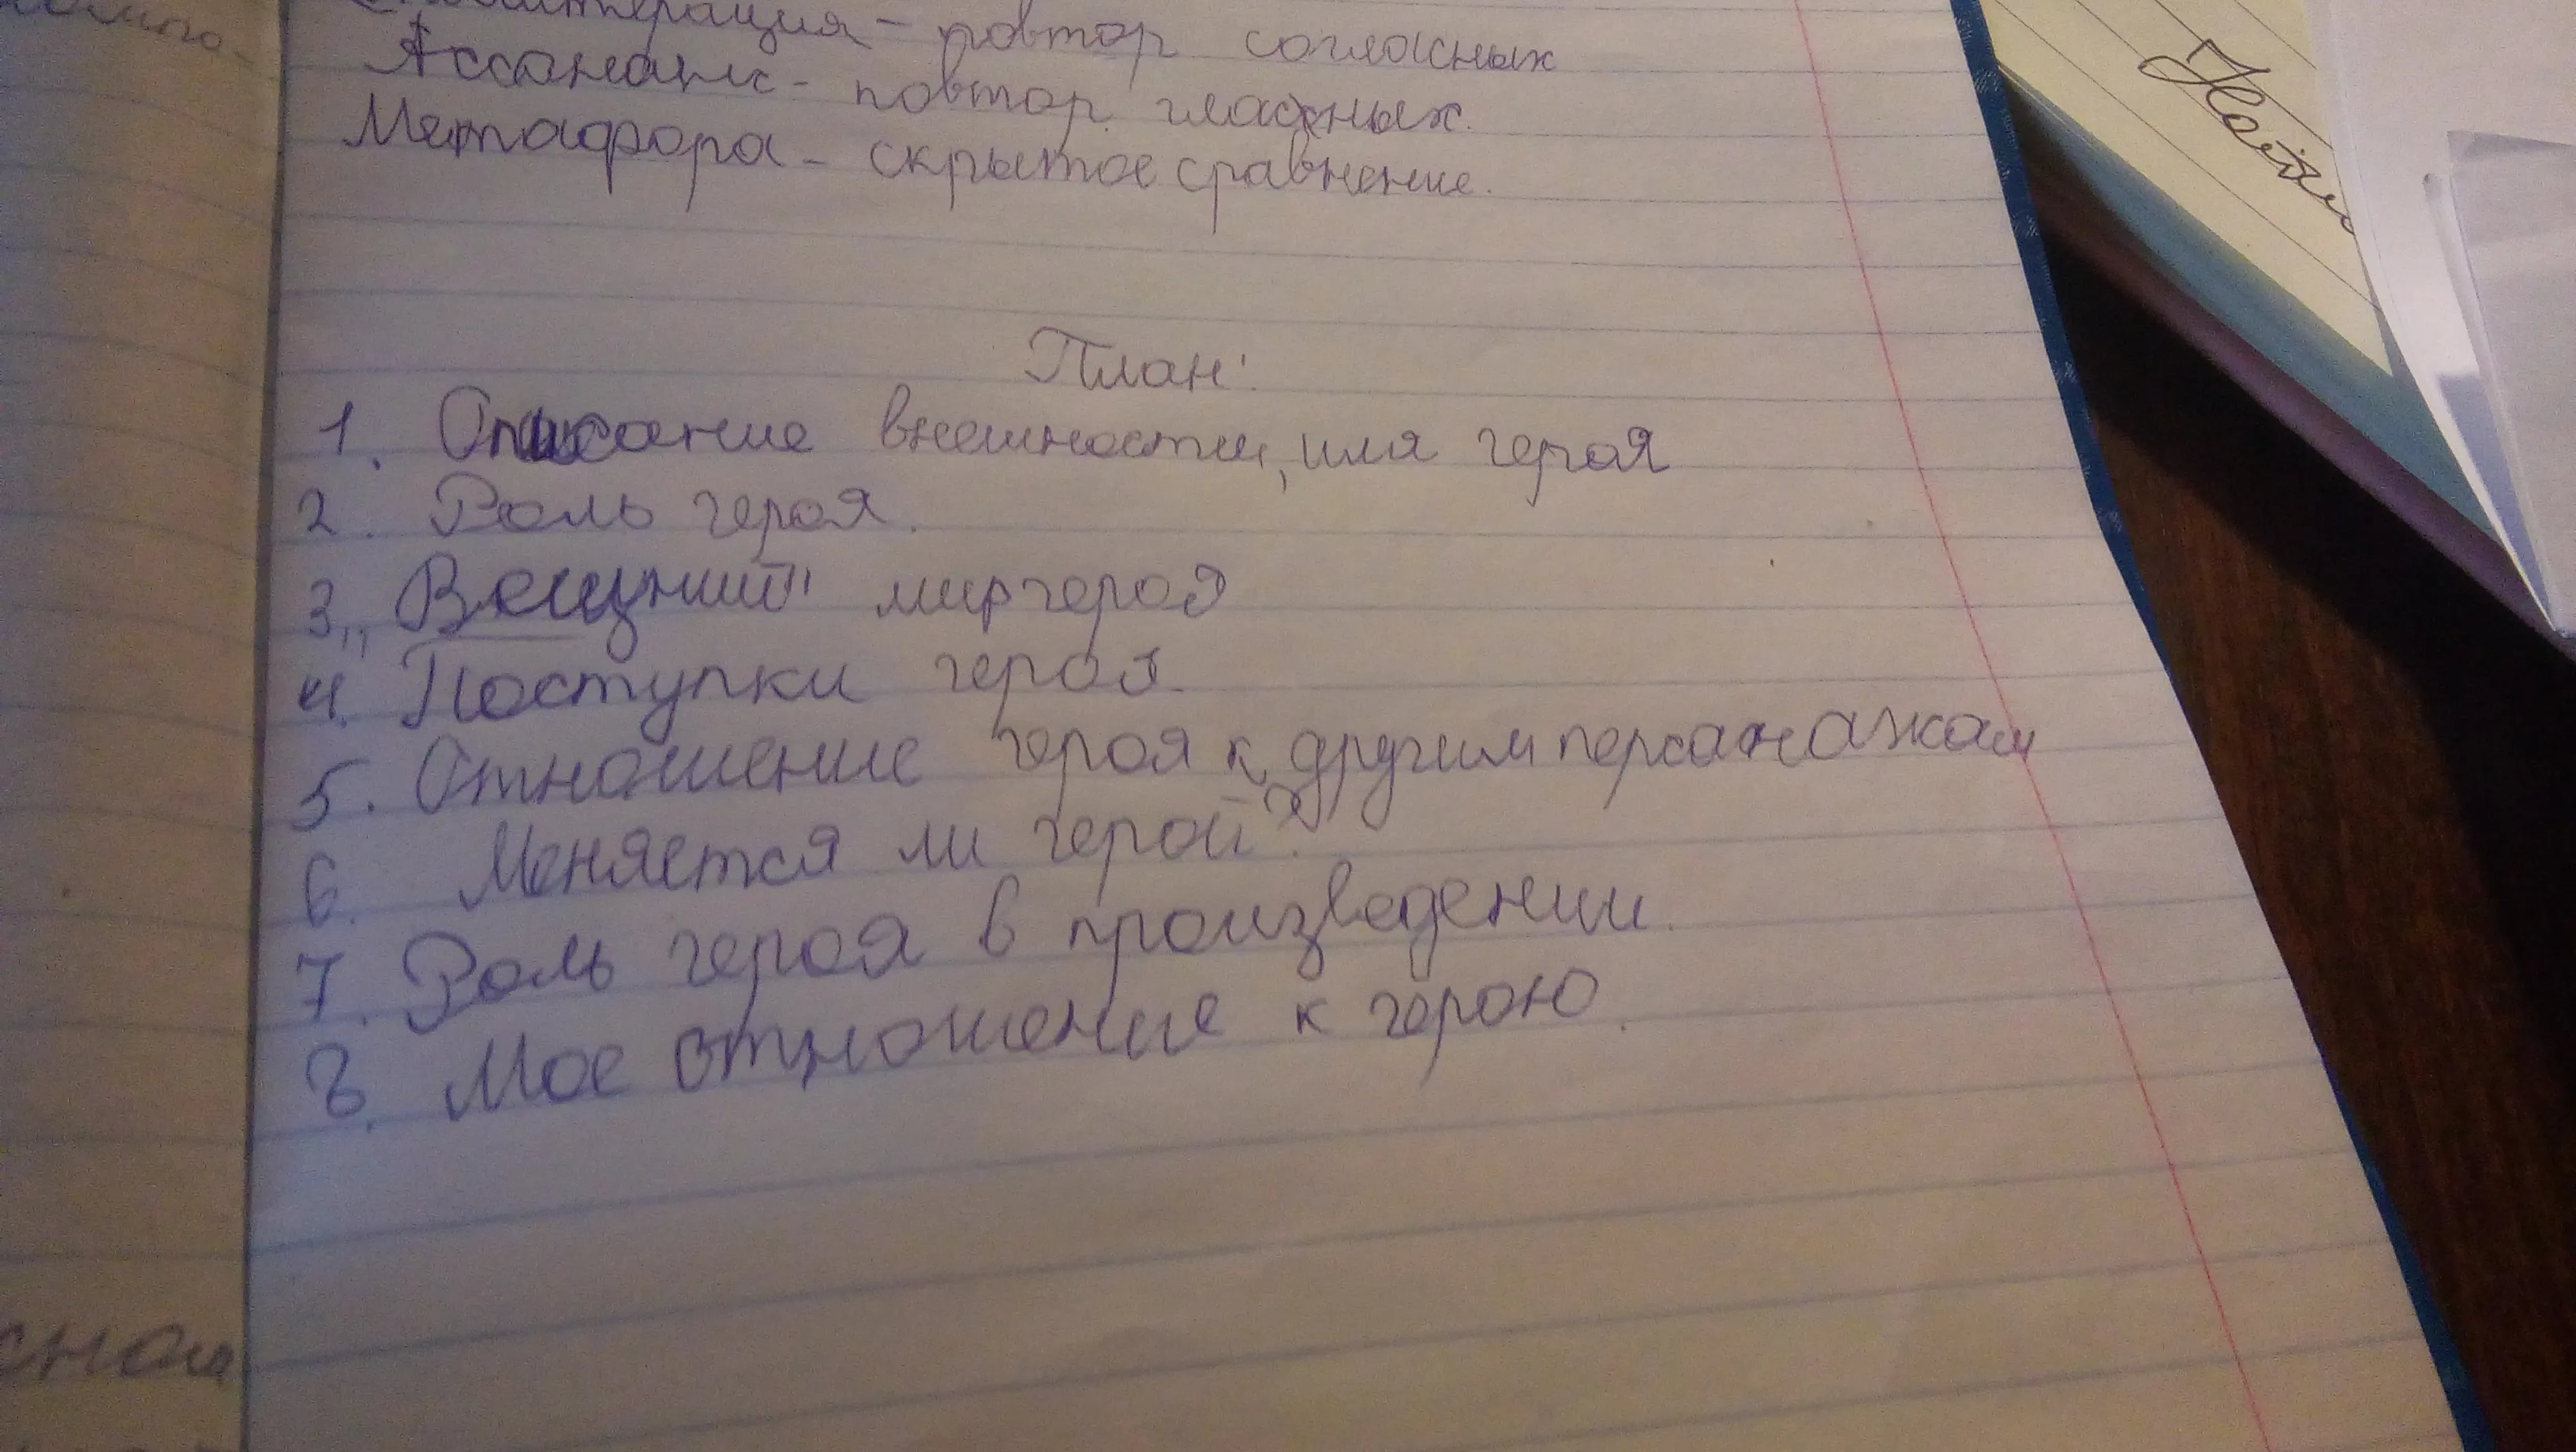 Аллитерация - повтор согласных
Ассонанс - повтор гласных.
Метафора - скрытое сравнение.
План:
1. Описание внешности, имя героя
2. Роль героя.
3. "Вещний" мир героя
4. Поступки героя.
5. Отношение героя к другим персанажам
6. Меняется ли герой?
7. Роль героя в произведении.
8. Мое отношение к герою.